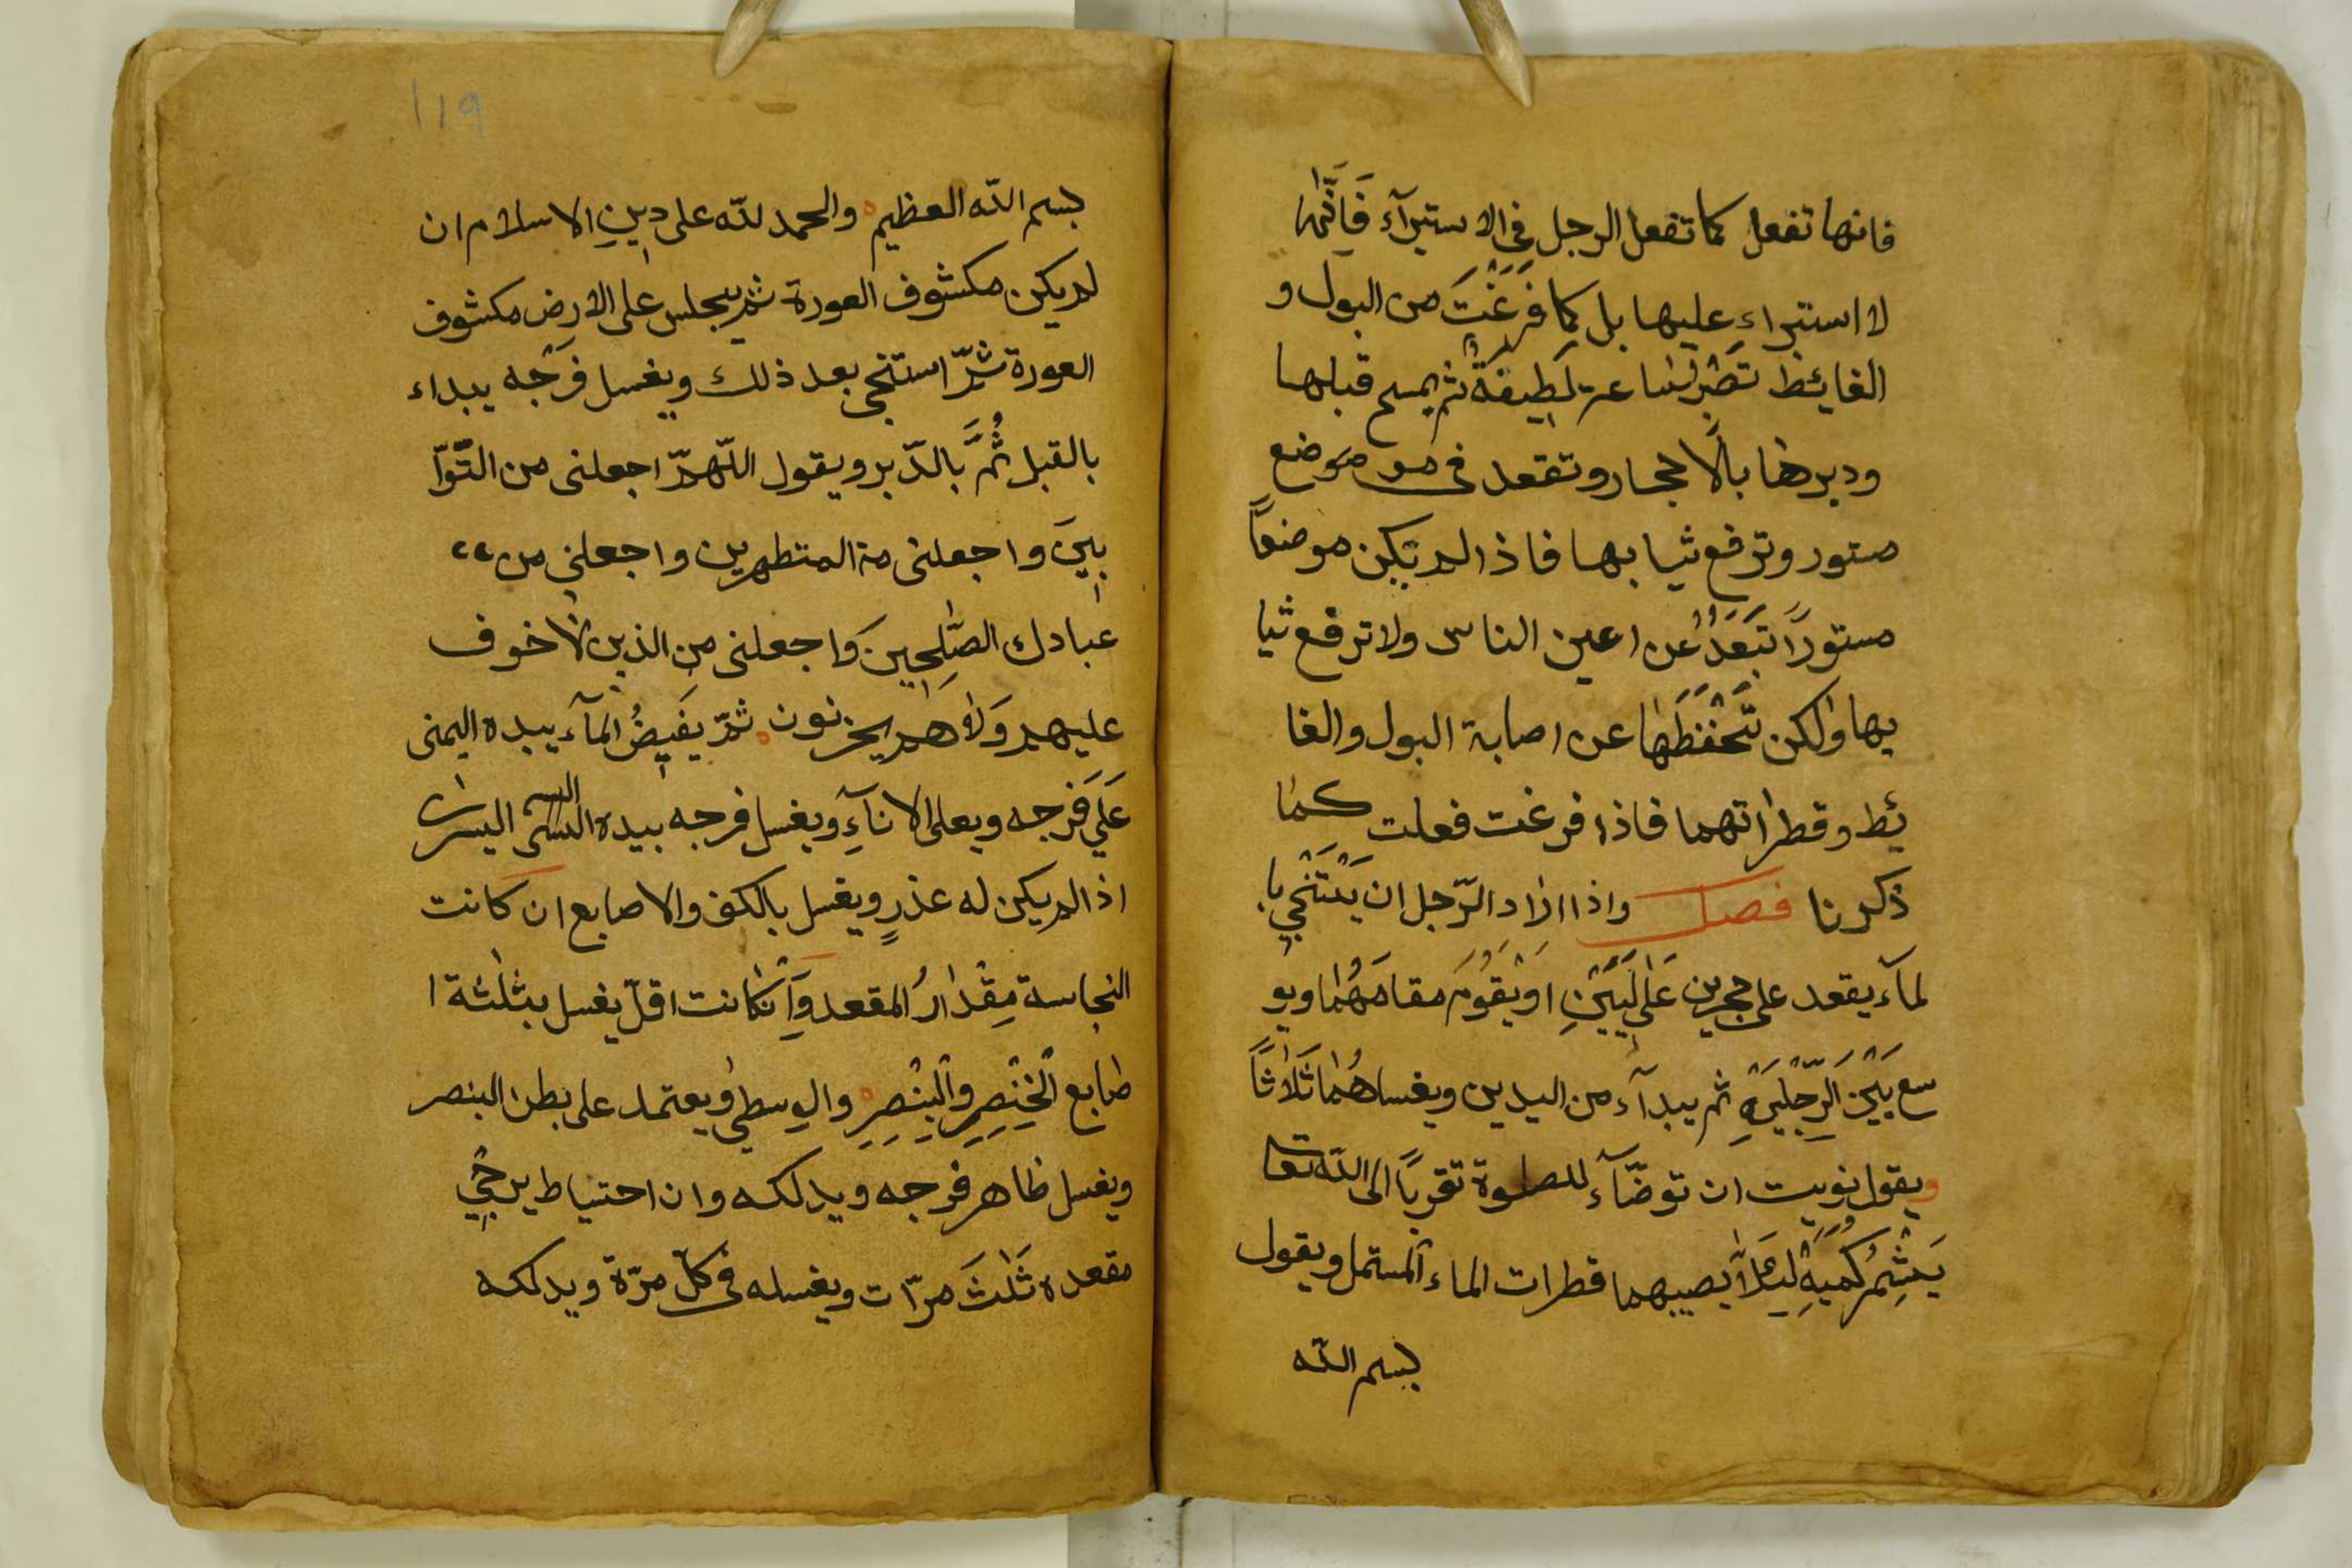 فانها تفعل كما تفعل الرجل فى الاستبرآء فَاِنَّهٰا
لا استبراء عليها بل كما فَرَغَتْ من البول و
الغايئط تَصْبِرُ ساعة لَطِيفَةً ثم يمسح قبلها
ودبرها بالاحجار وتقعد فى مو موضع
ستور وترفع ثيابها فاذا لم تكن موضعاً
مستوراً تَبَعَّدُ عن اعين الناس ولا ترفع ثيا
بها ولكن تَحَفَّظَهٰا عن اصابة البول والغا
ئط وقطراتهما فاذا فرغت فعلت كما
ذكرنا فصل واذا اراد الرّجل ان يَسْتَنْجِيَ با
لمآء يقعد على حجرين عَلٰى لَبِنَيْنِ اَوْ يَقُومُ مقامَهُمٰا ويو
سع بَيْنَ الرِّجْلَيْنِ ثم يبدآء من اليدين ويغسلهُمٰا ثَلاٰثاً
ويقول نويت ان توضّآء للصلوة تقرباً الى الله تعا
يَشْمُرُ كُمَّيْهِ لِئَلاَّ يصيبهما قطرات الماء المستمل ويقول
بسم الله
119
بسم الله العظيم والحمد لله على دِينِ الاسلام ان
لم يكن مكشوف العورة ثم يجلس على الارض مكشوف
العورة ثمّ استنجى بعد ذلك ويغسل فَرْجَه يبداء
بالقبل ثُمَّ بالدّبر ويقول اللّهمّ اجعلنى من التّوّا
بِينَ واجعلنى من المتطهرين واجعلنى من
عبادك الصّٰلِحِينَ وَاجعلنى من الذين لاٰ خوف
عليهم وَلاٰ هم يحزنون ثمّ يفيضُ المآء بيده اليمنى
عَلٰى فَرْجه ويعلى الانآءِ ويغسل فرجه بيده اليسرى
اذا لم يكن له عذرٍ ويغسل بالكف والاصابع ان كانت
النجاسة مِقْدٰارُ المقعد وَاِنْ كانت اقلّ يغسل بثلثة ا
صابع الْخِنْصِرِ وَالْبِنْصِرِ والوسطى ويعتمد على بطن البنصر
ويغسل ظاهر فرجه ويدلكه وان احتياط يرخى
مقعده ثَلٰثَ مرّات ويغسله فى كلّ مرّة ويدلكه